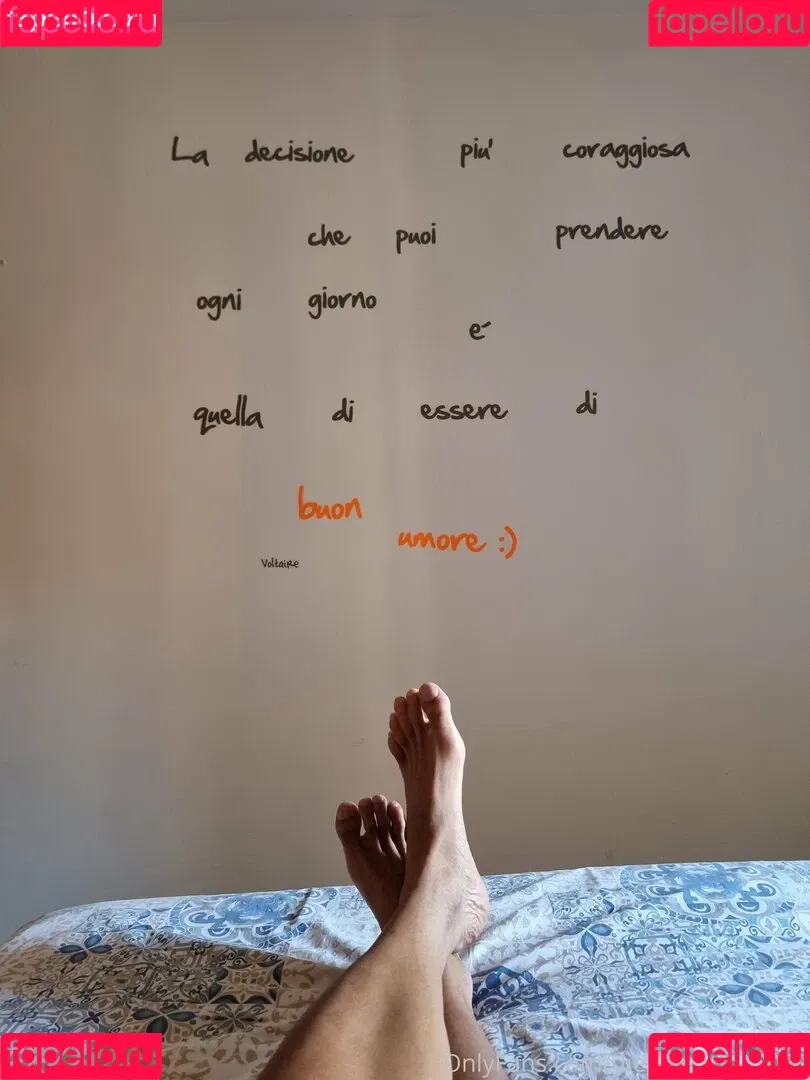 fapello.ru fapello.ru
La decisione piu' coraggiosa
che puoi prendere
ogni giorno
e'
quella di essere di
buon
umore :)
Voltaire
OnlyFans
fapello.ru fapello.ru